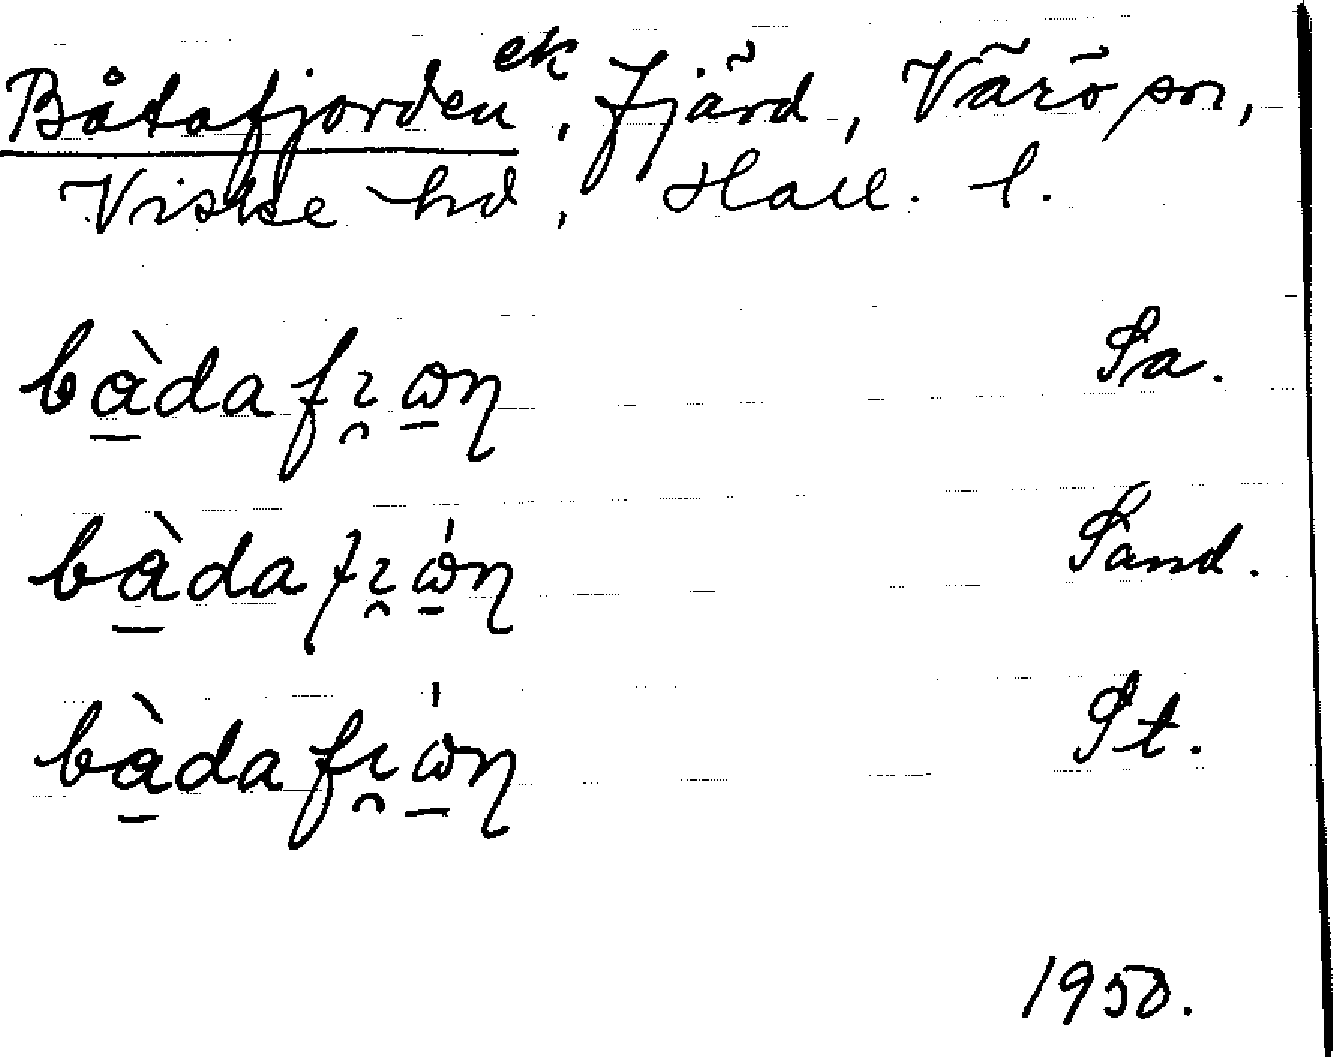 Båtafjorden ek, fjärd, Värö sn,
Viske hd, Hall. l.
bàdafı̯ωη Sa.
bàdafı̯ώη Sand.
bàdafı̯ώη St.
1950.